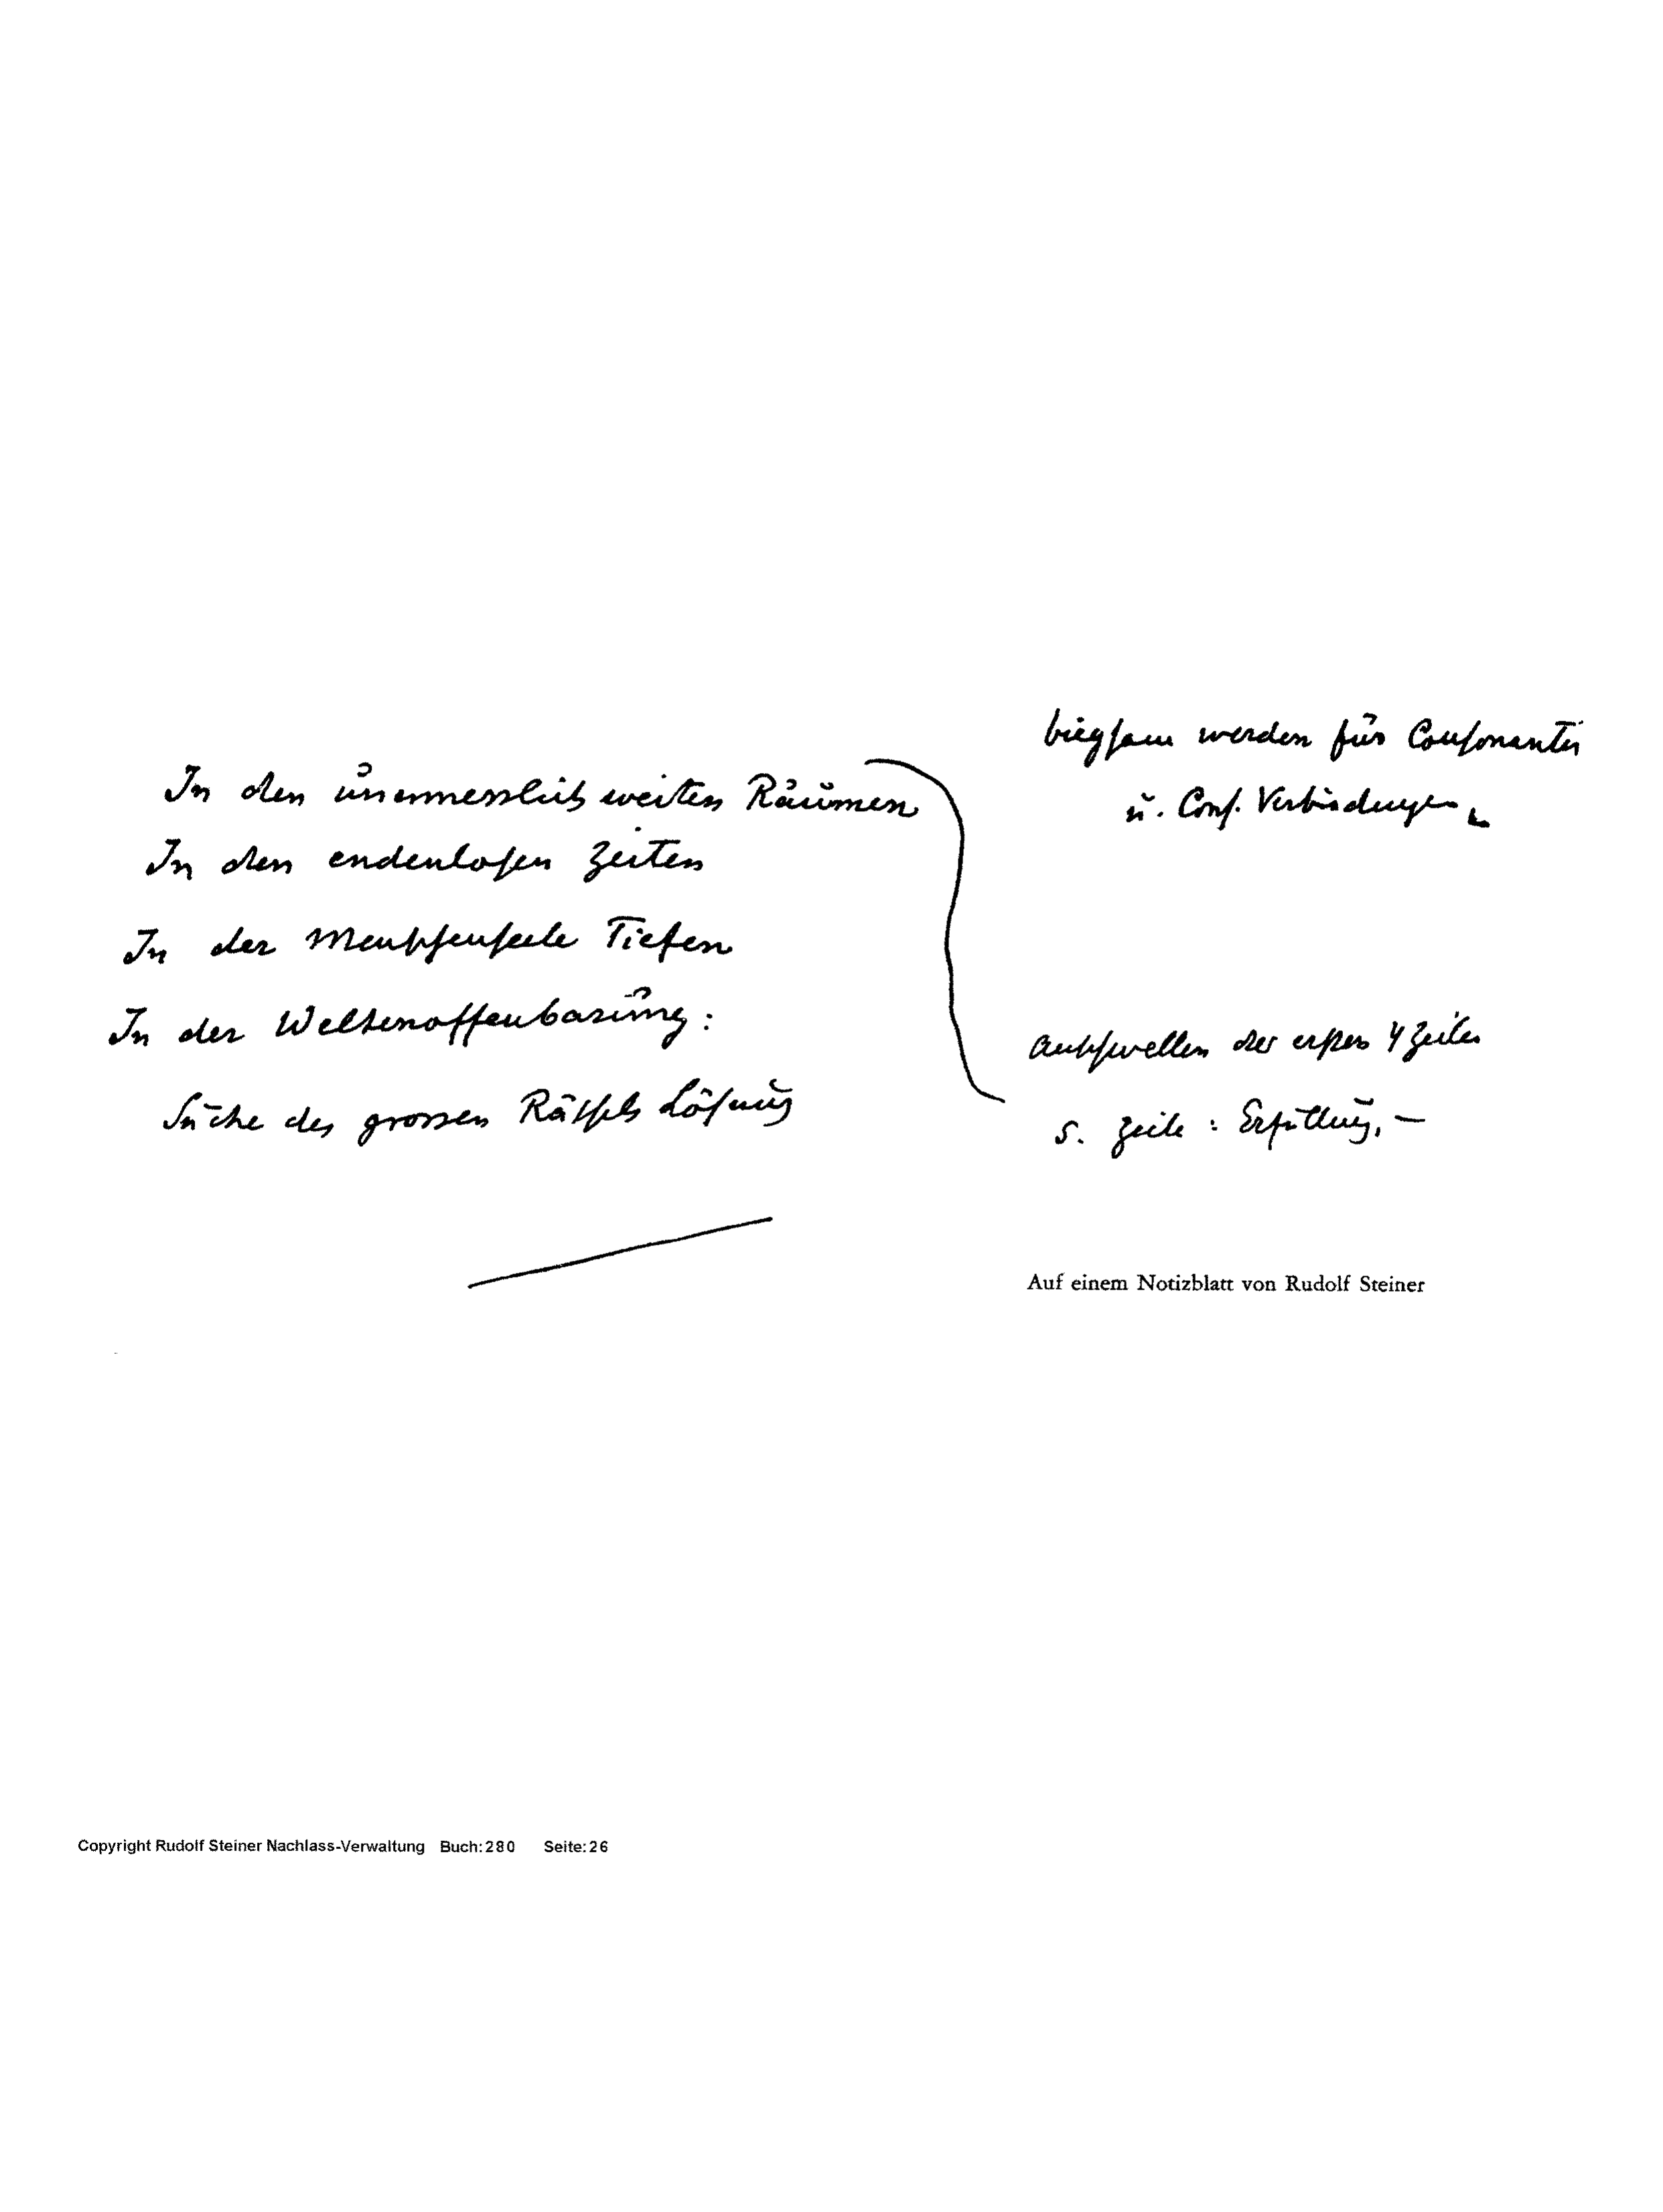 In den unermesslich weiten Räumen
In den endenlosen Zeiten
In der Menschenseele Tiefen
In der Weltenoffenbarung:
Suche des grossen Rätsels Lösung
biegsam werden für Consonanten
u. Cons. Verbindungen
Anschwellen der ersten 4 Zeilen
5. Zeile: Erfüllung. —
Auf einem Notizblatt von Rudolf Steiner
Copyright Rudolf Steiner Nachlass-Verwaltung Buch:280 Seite:26